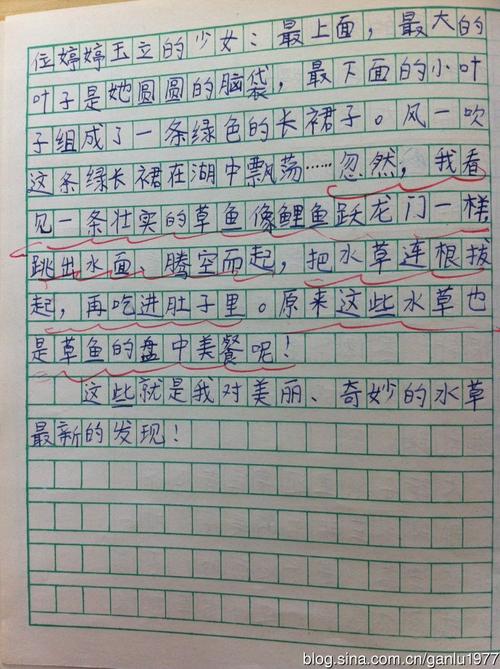 位婷婷玉立的少女：最上面，最大的
叶子是她圆圆的脑袋，最下面的小叶
子组成了一条绿色的长裙子。风一吹
这条绿长裙在湖中飘荡……忽然，我看
见一条壮实的草鱼像鲤鱼跃龙门一样
跳出水面、腾空而起，把水草连根拔
起，再吃进肚子里。原来这些水草也
是草鱼的盘中美餐呢！
这些就是我对美丽、奇妙的水草
最新的发现！
blog.sina.com.cn/ganlu1977